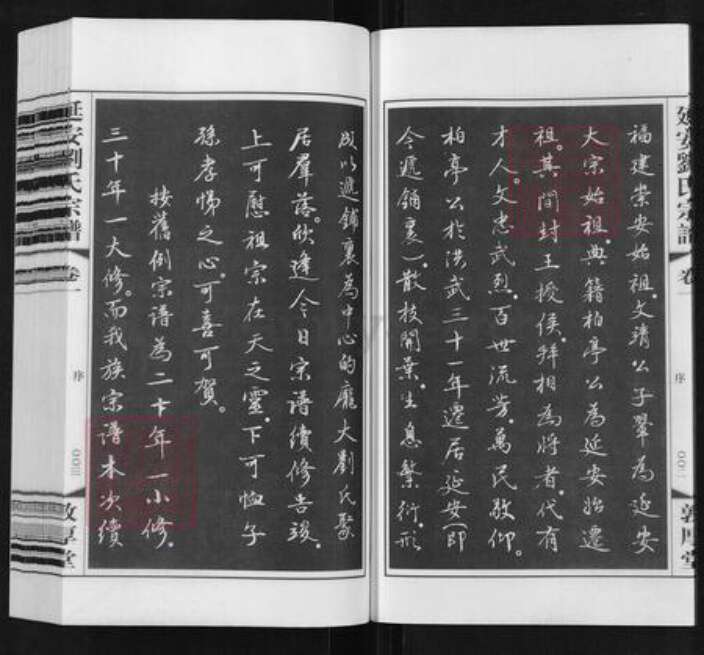 福建崇安始祖。文靖公子翬為延安
大宗始祖。典籍柏亭公為延安始遷
祖。其間封王授侯。拜相為將者。代有
才人。文忠武烈。百世流芳。萬民敬仰。
柏亭公於洪武三十一年遷居延安（即
今遞鋪裏）。散枝開葉。生息繁衍。形
延安劉氏宗譜
卷一
序
〇〇二
敦厚堂
成以遞鋪裏為中心的龐大劉氏聚
居羣落。欣逢今日宗譜續修告竣。
上可慰祖宗在天之靈。下可恤子
孫孝悌之心。可喜可賀。
按舊例宗譜為二十年一小修。
三十年一大修。而我族宗譜本次續
延安劉氏宗譜
卷一
序
〇〇三
敦厚堂